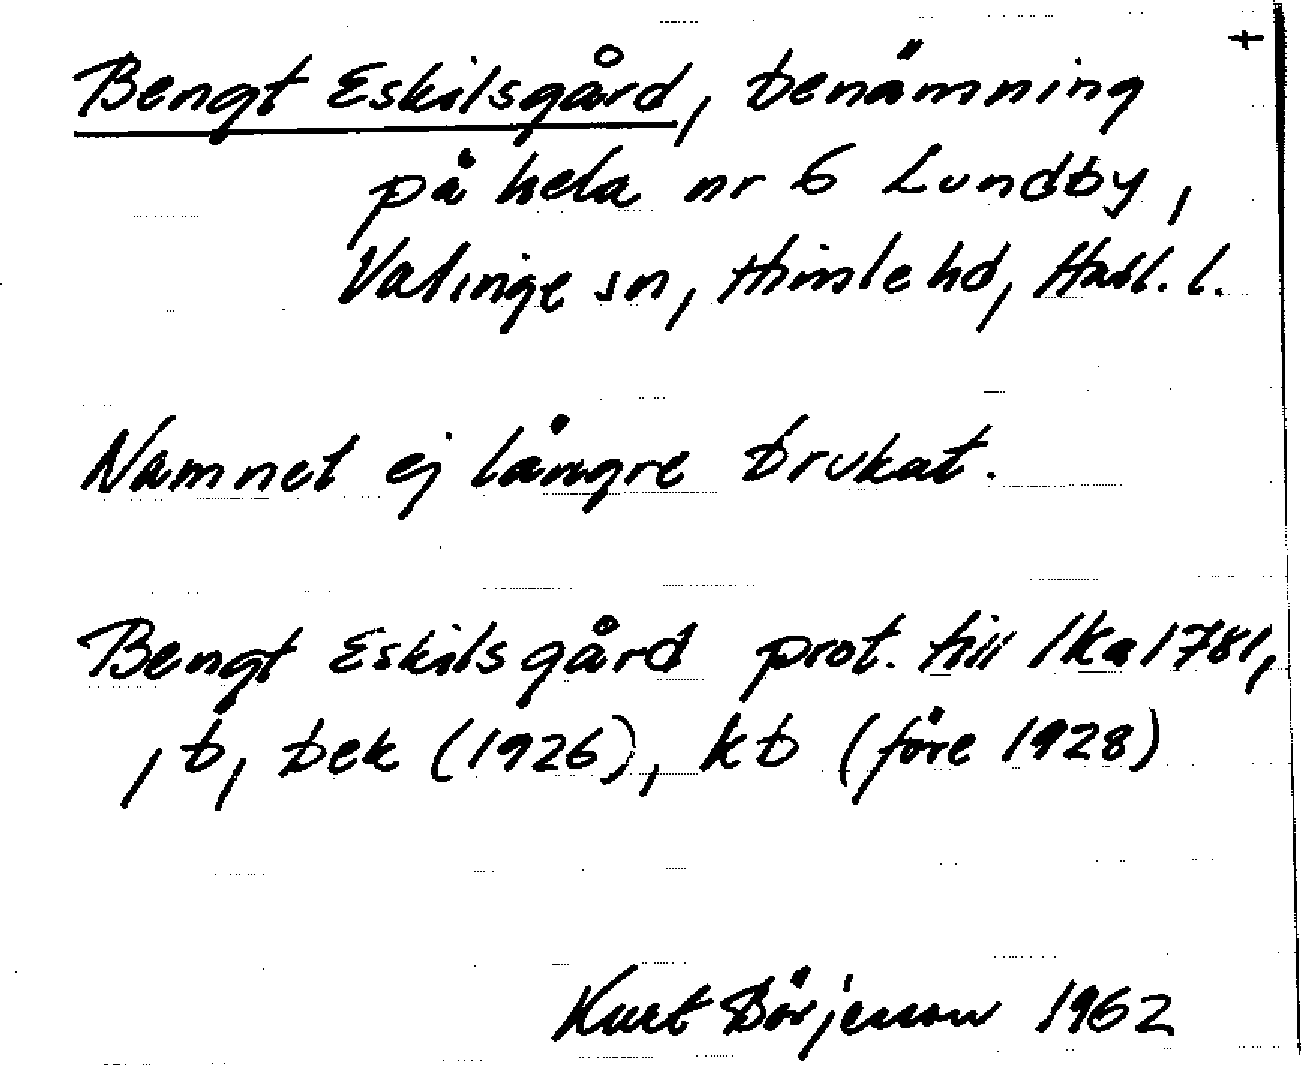 †
Bengt Eskilsgård, benämning
på hela nr 6 Lundby,
Valinge sn, Himle hd, Hall. l.
Namnet ej längre brukat.
Bengt Eskilsgård prot. till lka 1781,
, b, bek (1926), kb (före 1928)
Kurt Börjesson 1962